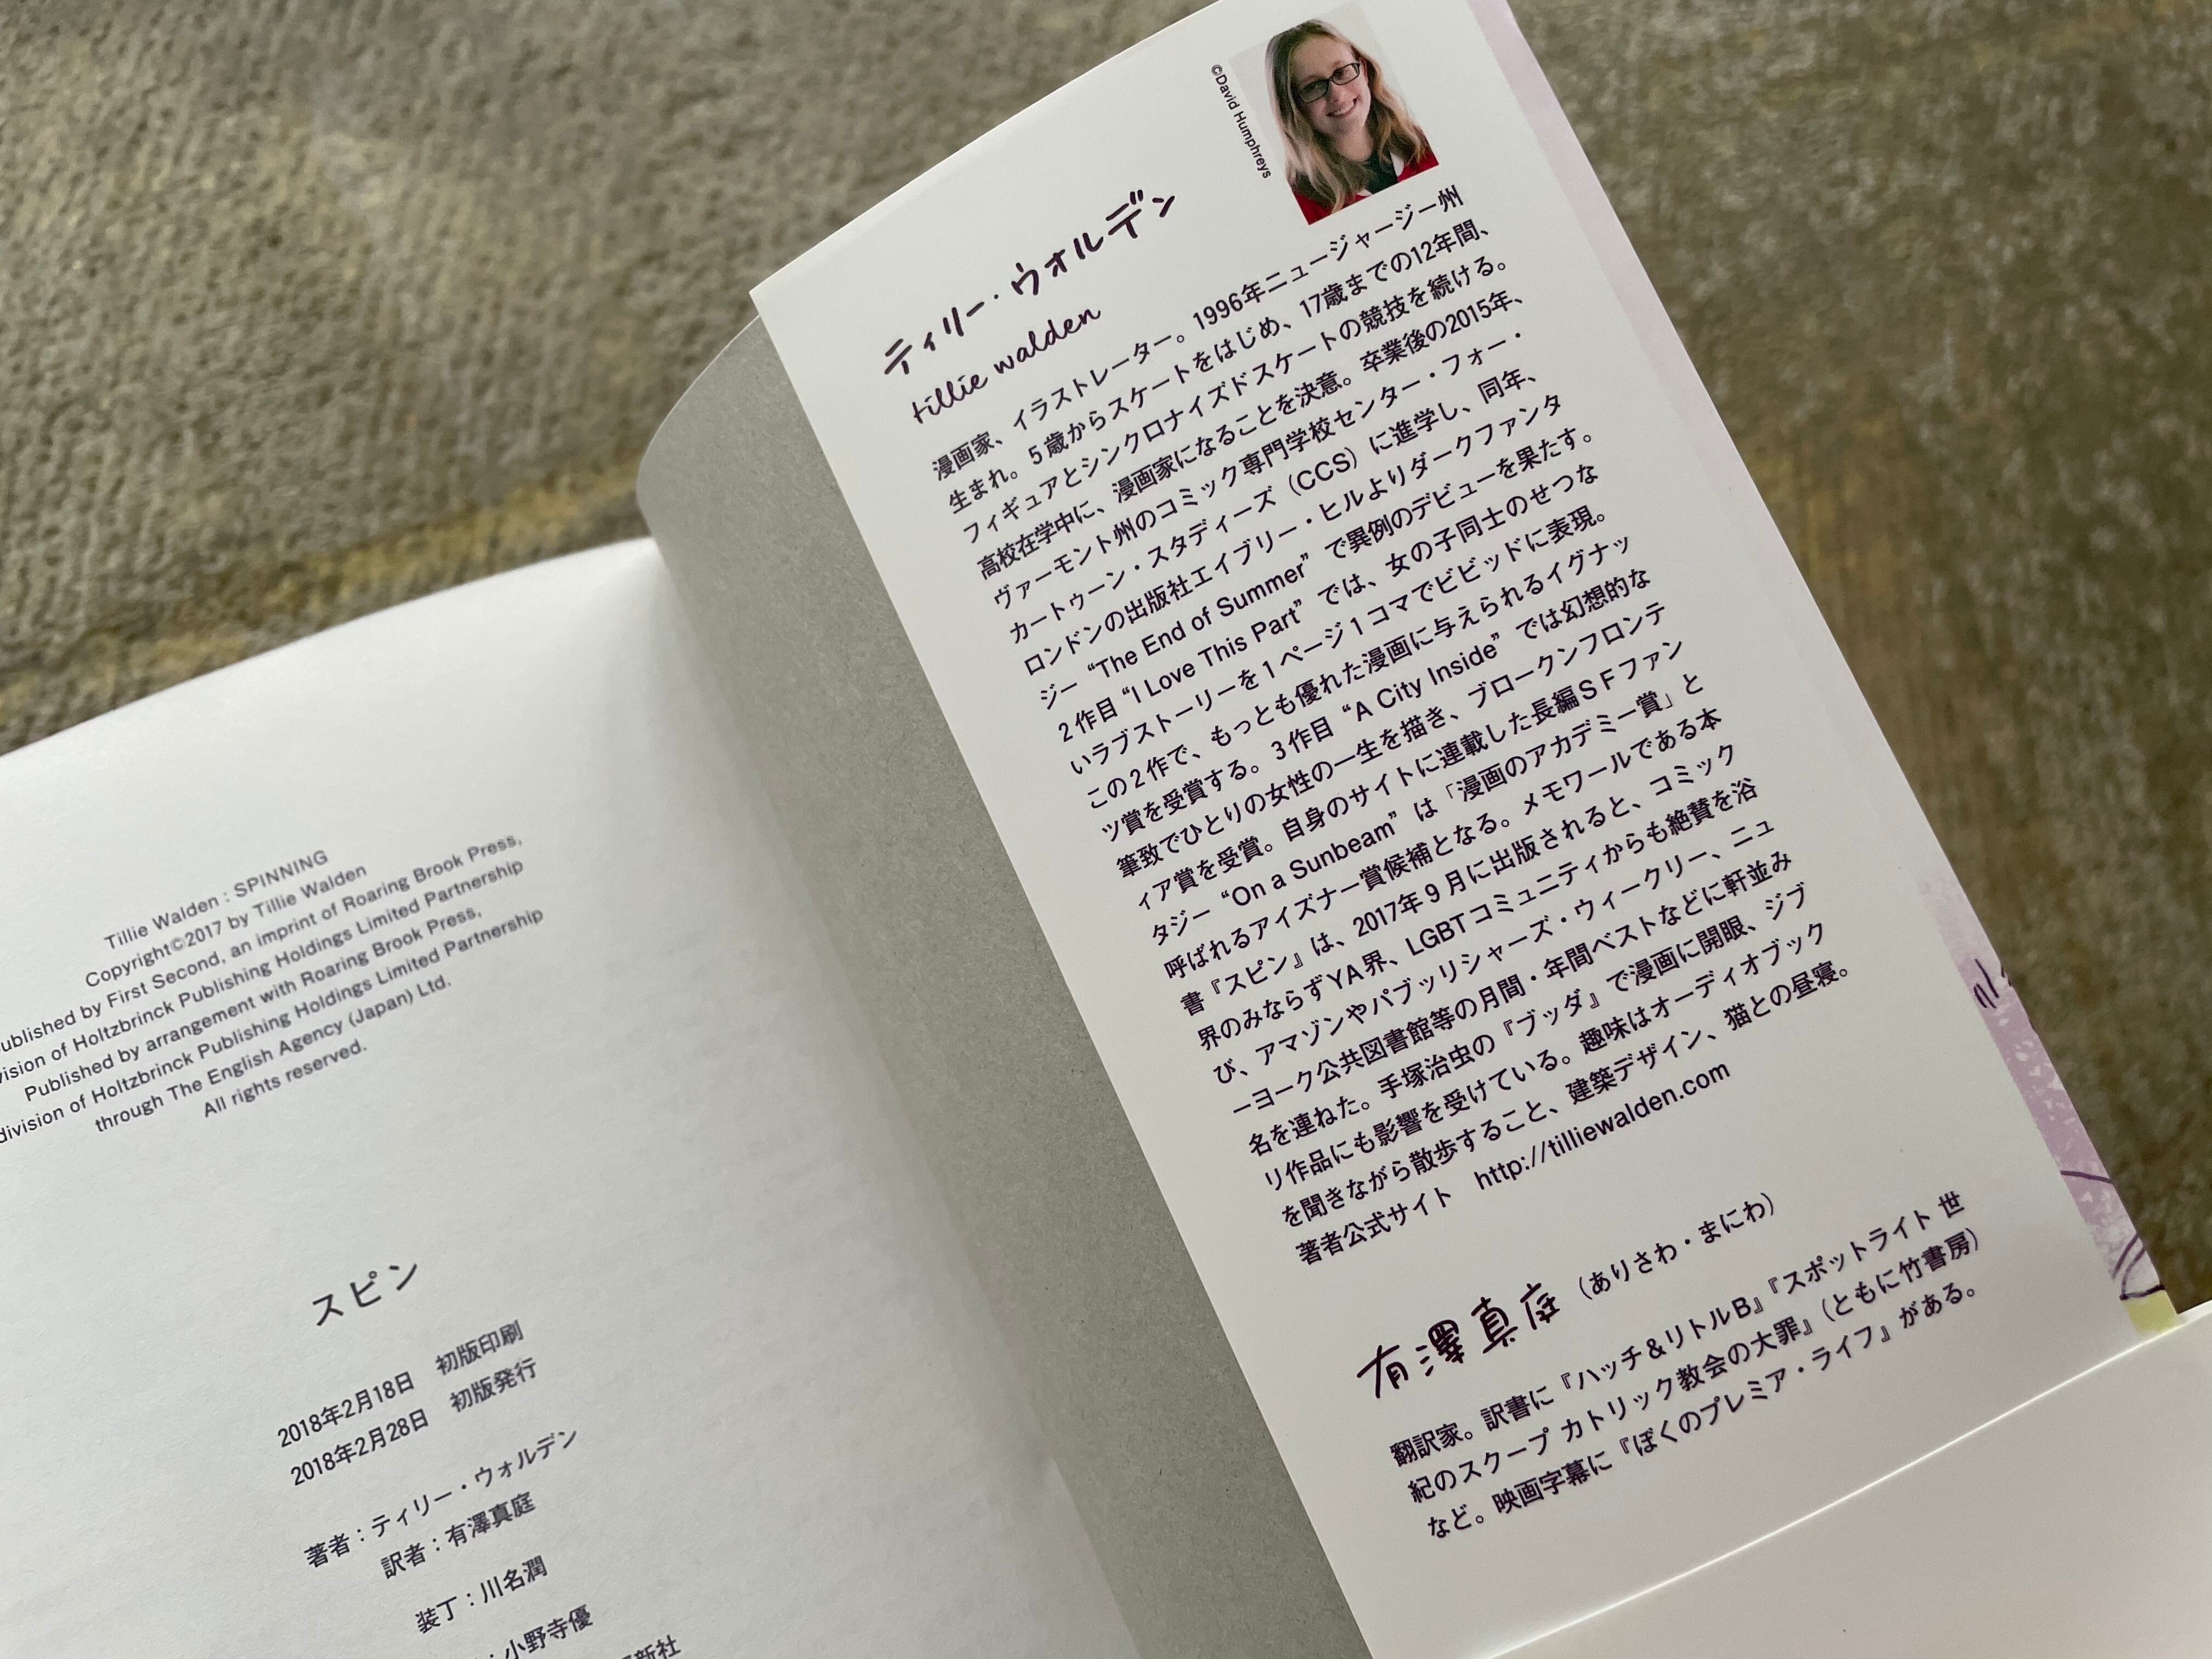 Tillie Walden : SPINNING
Copyright©2017 by Tillie Walden
ublished by First Second, an imprint of Roaring Brook Press,
vision of Holtzbrinck Publishing Holdings Limited Partnership
Published by arrangement with Roaring Brook Press,
division of Holtzbrinck Publishing Holdings Limited Partnership
through The English Agency (Japan) Ltd.
All rights reserved.
スピン
2018年2月18日 初版印刷
2018年2月28日 初版発行
著者：ティリー・ウォルデン
訳者：有澤真庭
装丁：川名潤
：小野寺優
新社
©David Humphreys
ティリー・ウォルデン
tillie walden
漫画家、イラストレーター。1996年ニュージャージー州
生まれ。5歳からスケートをはじめ、17歳までの12年間、
フィギュアとシンクロナイズドスケートの競技を続ける。
高校在学中に、漫画家になることを決意。卒業後の2015年、
ヴァーモント州のコミック専門学校センター・フォー・
カートゥーン・スタディーズ（CCS）に進学し、同年、
ロンドンの出版社エイブリー・ヒルよりダークファンタ
ジー “The End of Summer” で異例のデビューを果たす。
2作目 “I Love This Part” では、女の子同士のせつな
いラブストーリーを1ページ1コマでビビッドに表現。
この2作で、もっとも優れた漫画に与えられるイグナッ
ツ賞を受賞する。3作目 “A City Inside” では幻想的な
筆致でひとりの女性の一生を描き、ブロークンフロンテ
ィア賞を受賞。自身のサイトに連載した長編SFファン
タジー “On a Sunbeam” は「漫画のアカデミー賞」と
呼ばれるアイズナー賞候補となる。メモワールである本
書『スピン』は、2017年9月に出版されると、コミック
界のみならずYA界、LGBTコミュニティからも絶賛を浴
び、アマゾンやパブッリシャーズ・ウィークリー、ニュ
ーヨーク公共図書館等の月間・年間ベストなどに軒並み
名を連ねた。手塚治虫の『ブッダ』で漫画に開眼、ジブ
リ作品にも影響を受けている。趣味はオーディオブック
を聞きながら散歩すること、建築デザイン、猫との昼寝。
著者公式サイト http://tilliewalden.com
有澤真庭（ありさわ・まにわ）
翻訳家。訳書に『ハッチ＆リトルB』『スポットライト 世
紀のスクープ カトリック教会の大罪』（ともに竹書房）
など。映画字幕に『ぼくのプレミア・ライフ』がある。